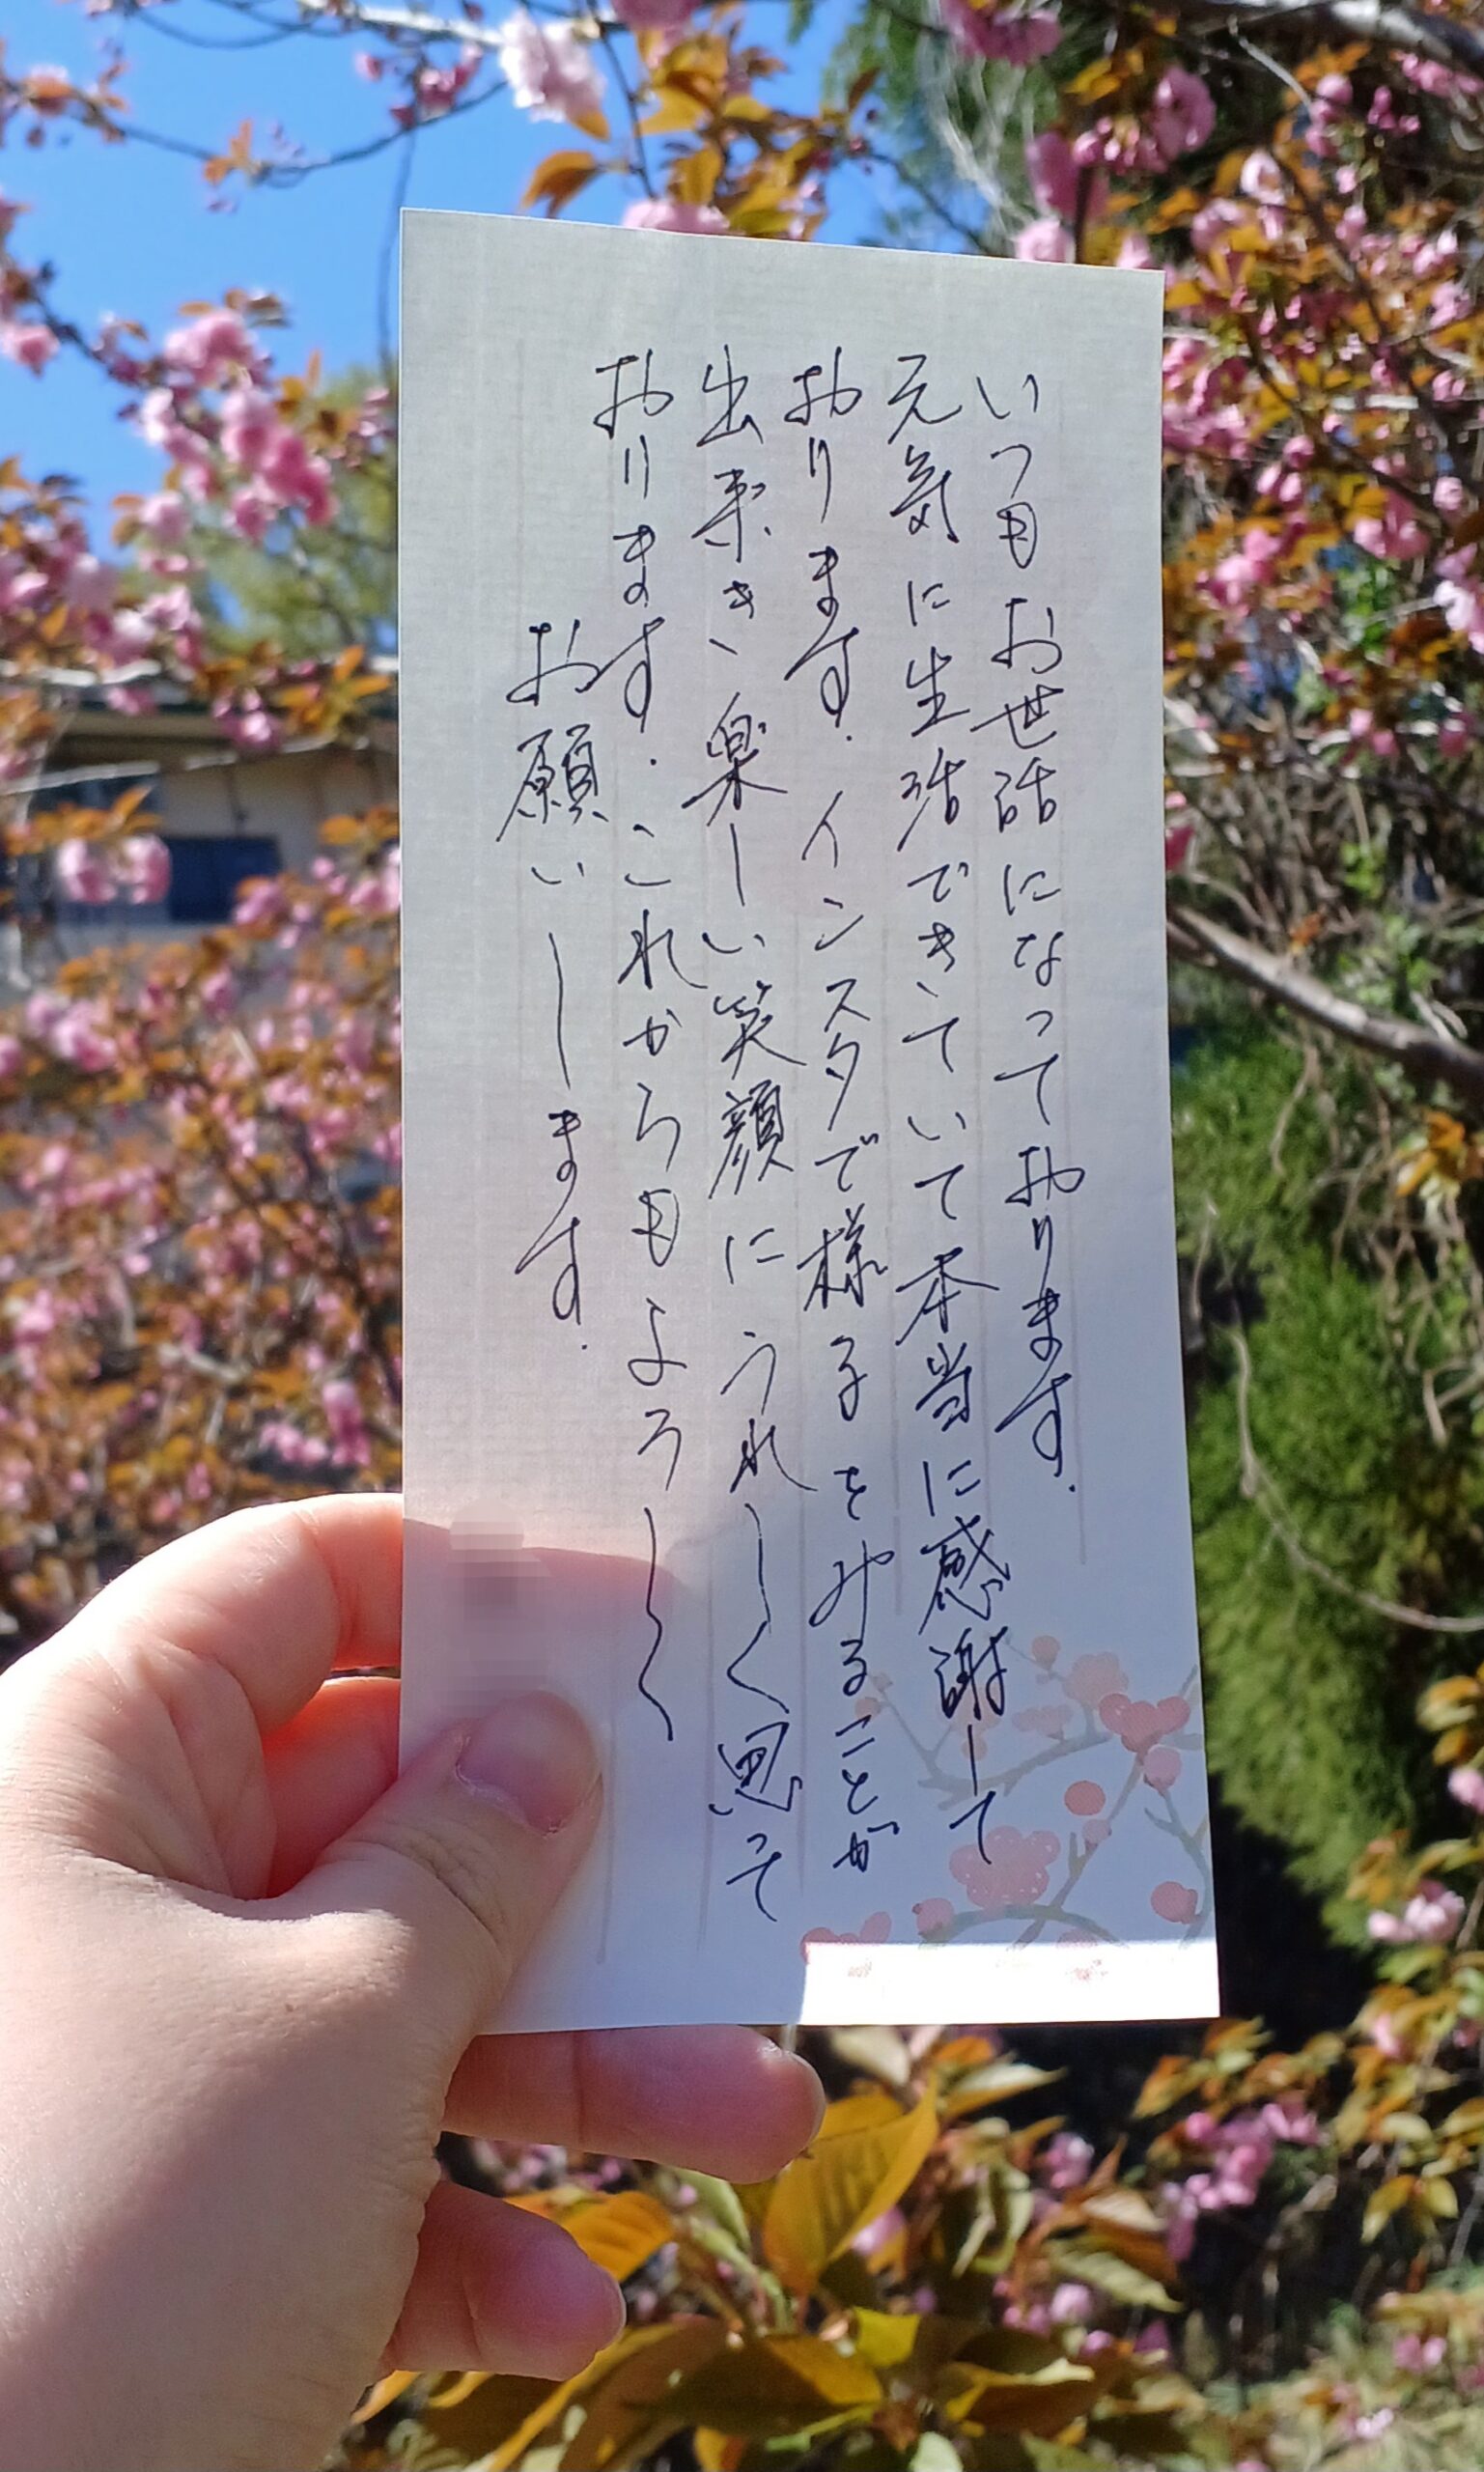 いつもお世話になっております.
元気に生活できていて本当に感謝して
おります. インスタで様子をみることが
出来き楽しい笑顔にうれしく思って
おります. これからもよろしく
お願いします.